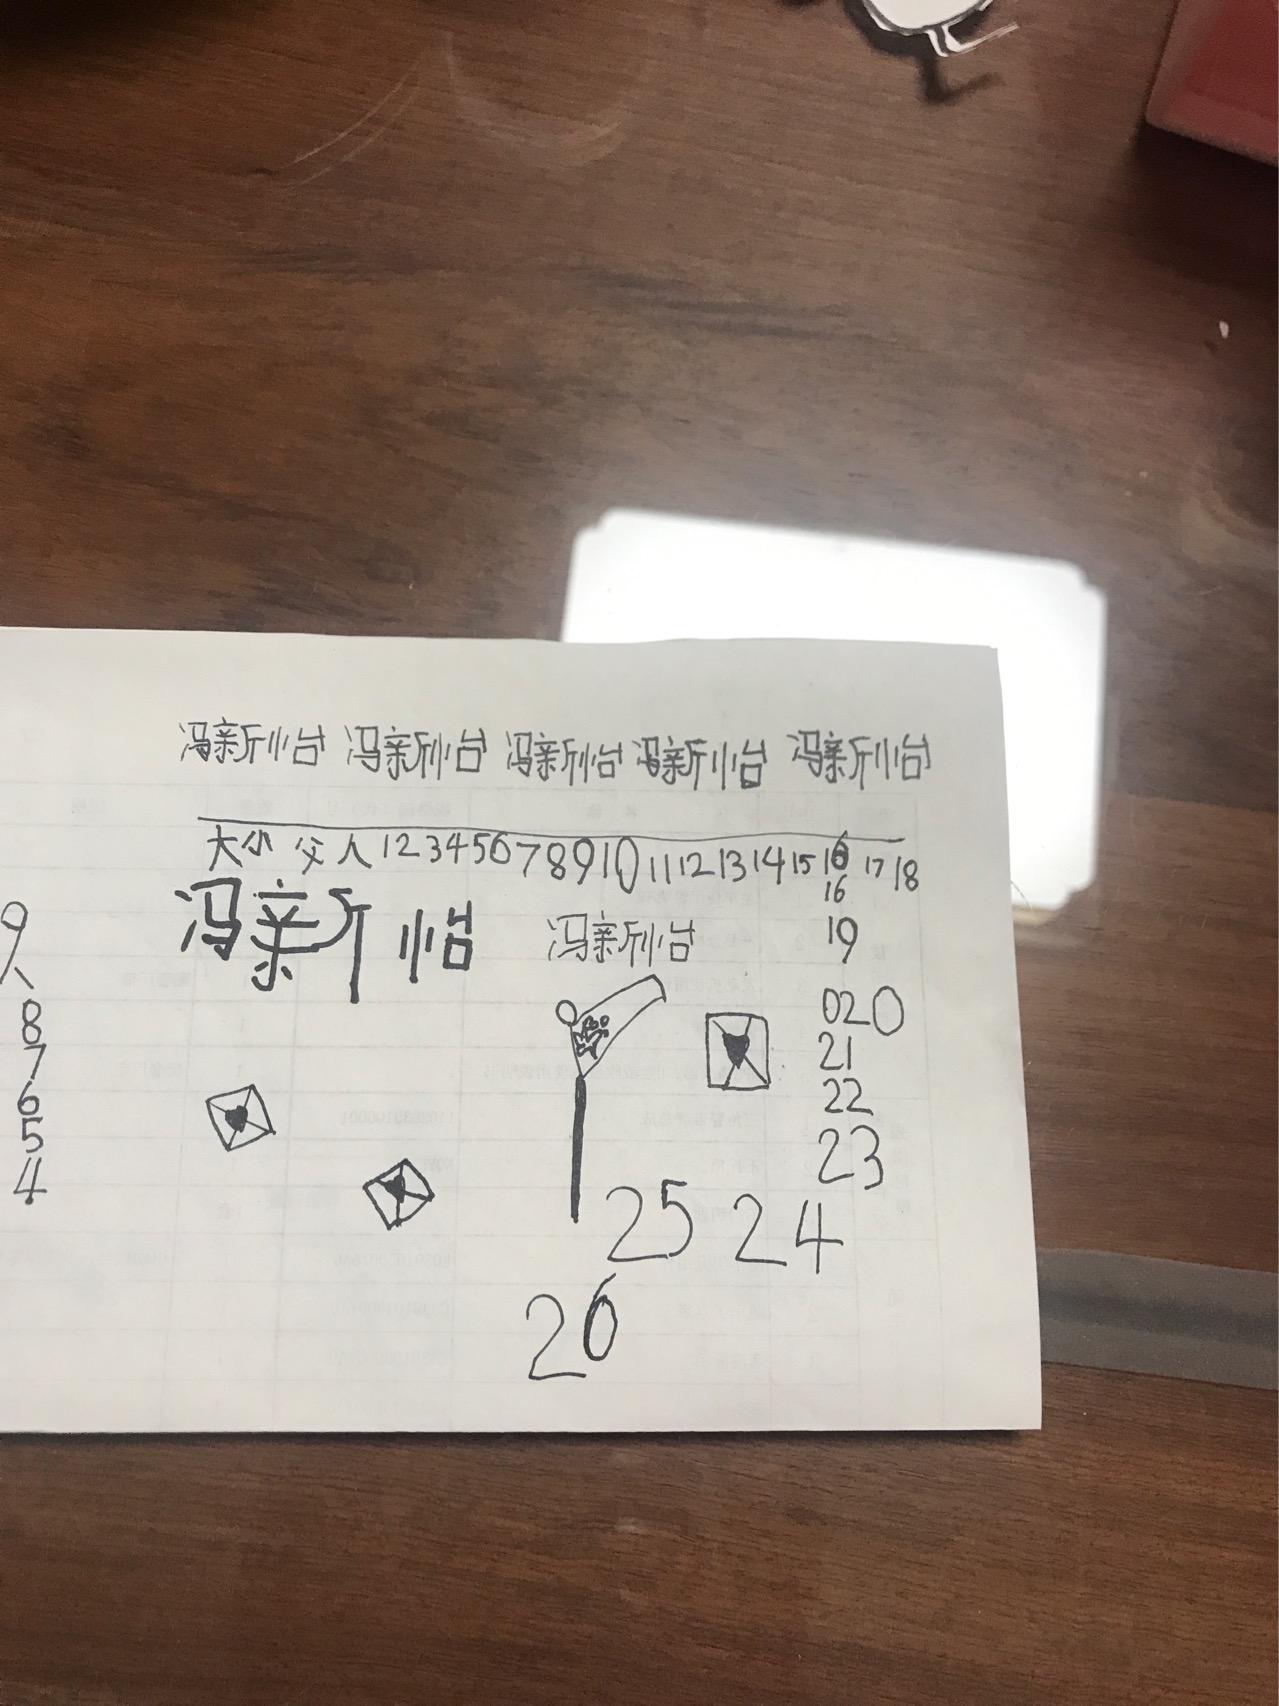 冯新怡 冯新怡 冯新怡 冯新怡 冯新怡
大小 父人 1 2 3 4 5 6 7 8 9 10 11 12 13 14 15 16 17 18
16
冯新怡 冯新怡 19
9
人
8
7
6
5
4
020
21
22
23
25 24
26